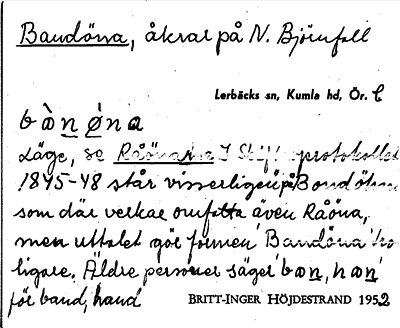 Bandöna, åkrar på N. Björnfall
Lerbäcks sn, Kumla hd, Ör. l
bànǿna
Läge, se Råönarna I Skiftesprotokollet
1845-48 står visserligen på Bandöna
som där verkar omfatta även Råöna,
men uttalet gör formen Bandöna tro
ligare. Äldre personer säger ban, han
för band, hand
BRITT-INGER HÖJDESTRAND 1952